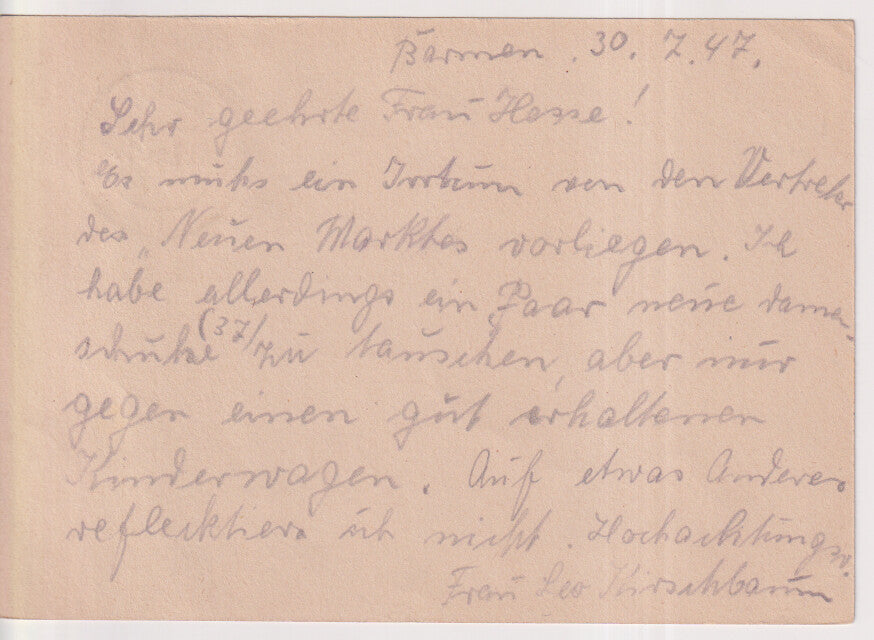 Barmen. 30. 7. 47.
Sehr geehrte Frau Hesse!
Es muhs ein Irrtum von den Vertreter
des "Neuen Marktes vorliegen. Ich
habe allerdings ein Paar neue Damen-
schuhe (37) zu tauschen, aber nur
gegen einen gut erhaltenen
Kinderwagen. Auf etwas Anderes
reflecktiere ich nicht. Hochachtungsv.
Frau Leo Kirschbaum